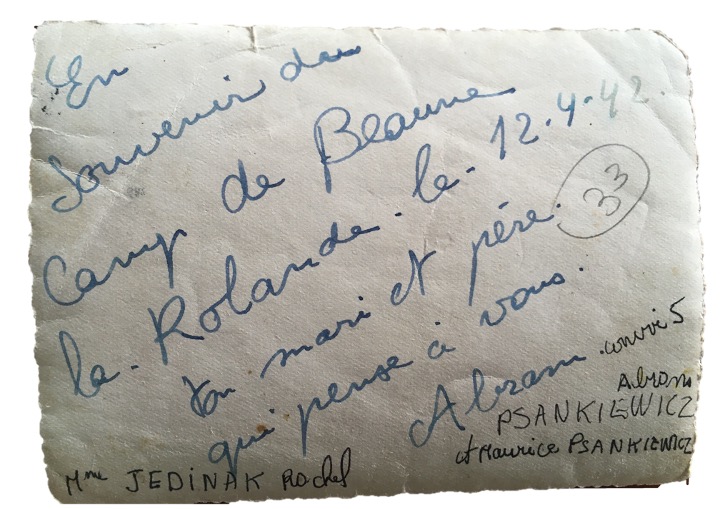 En
Souvenir du
Camp de Beaune
la-Rolande. le. 12.4.42.
Ton mari et père.
qui pense à vous.
Abram
33
convoi 5
Abram
PSANKIEWICZ
et Maurice PSANKIEWICZ
Mme JEDINAK Rachel